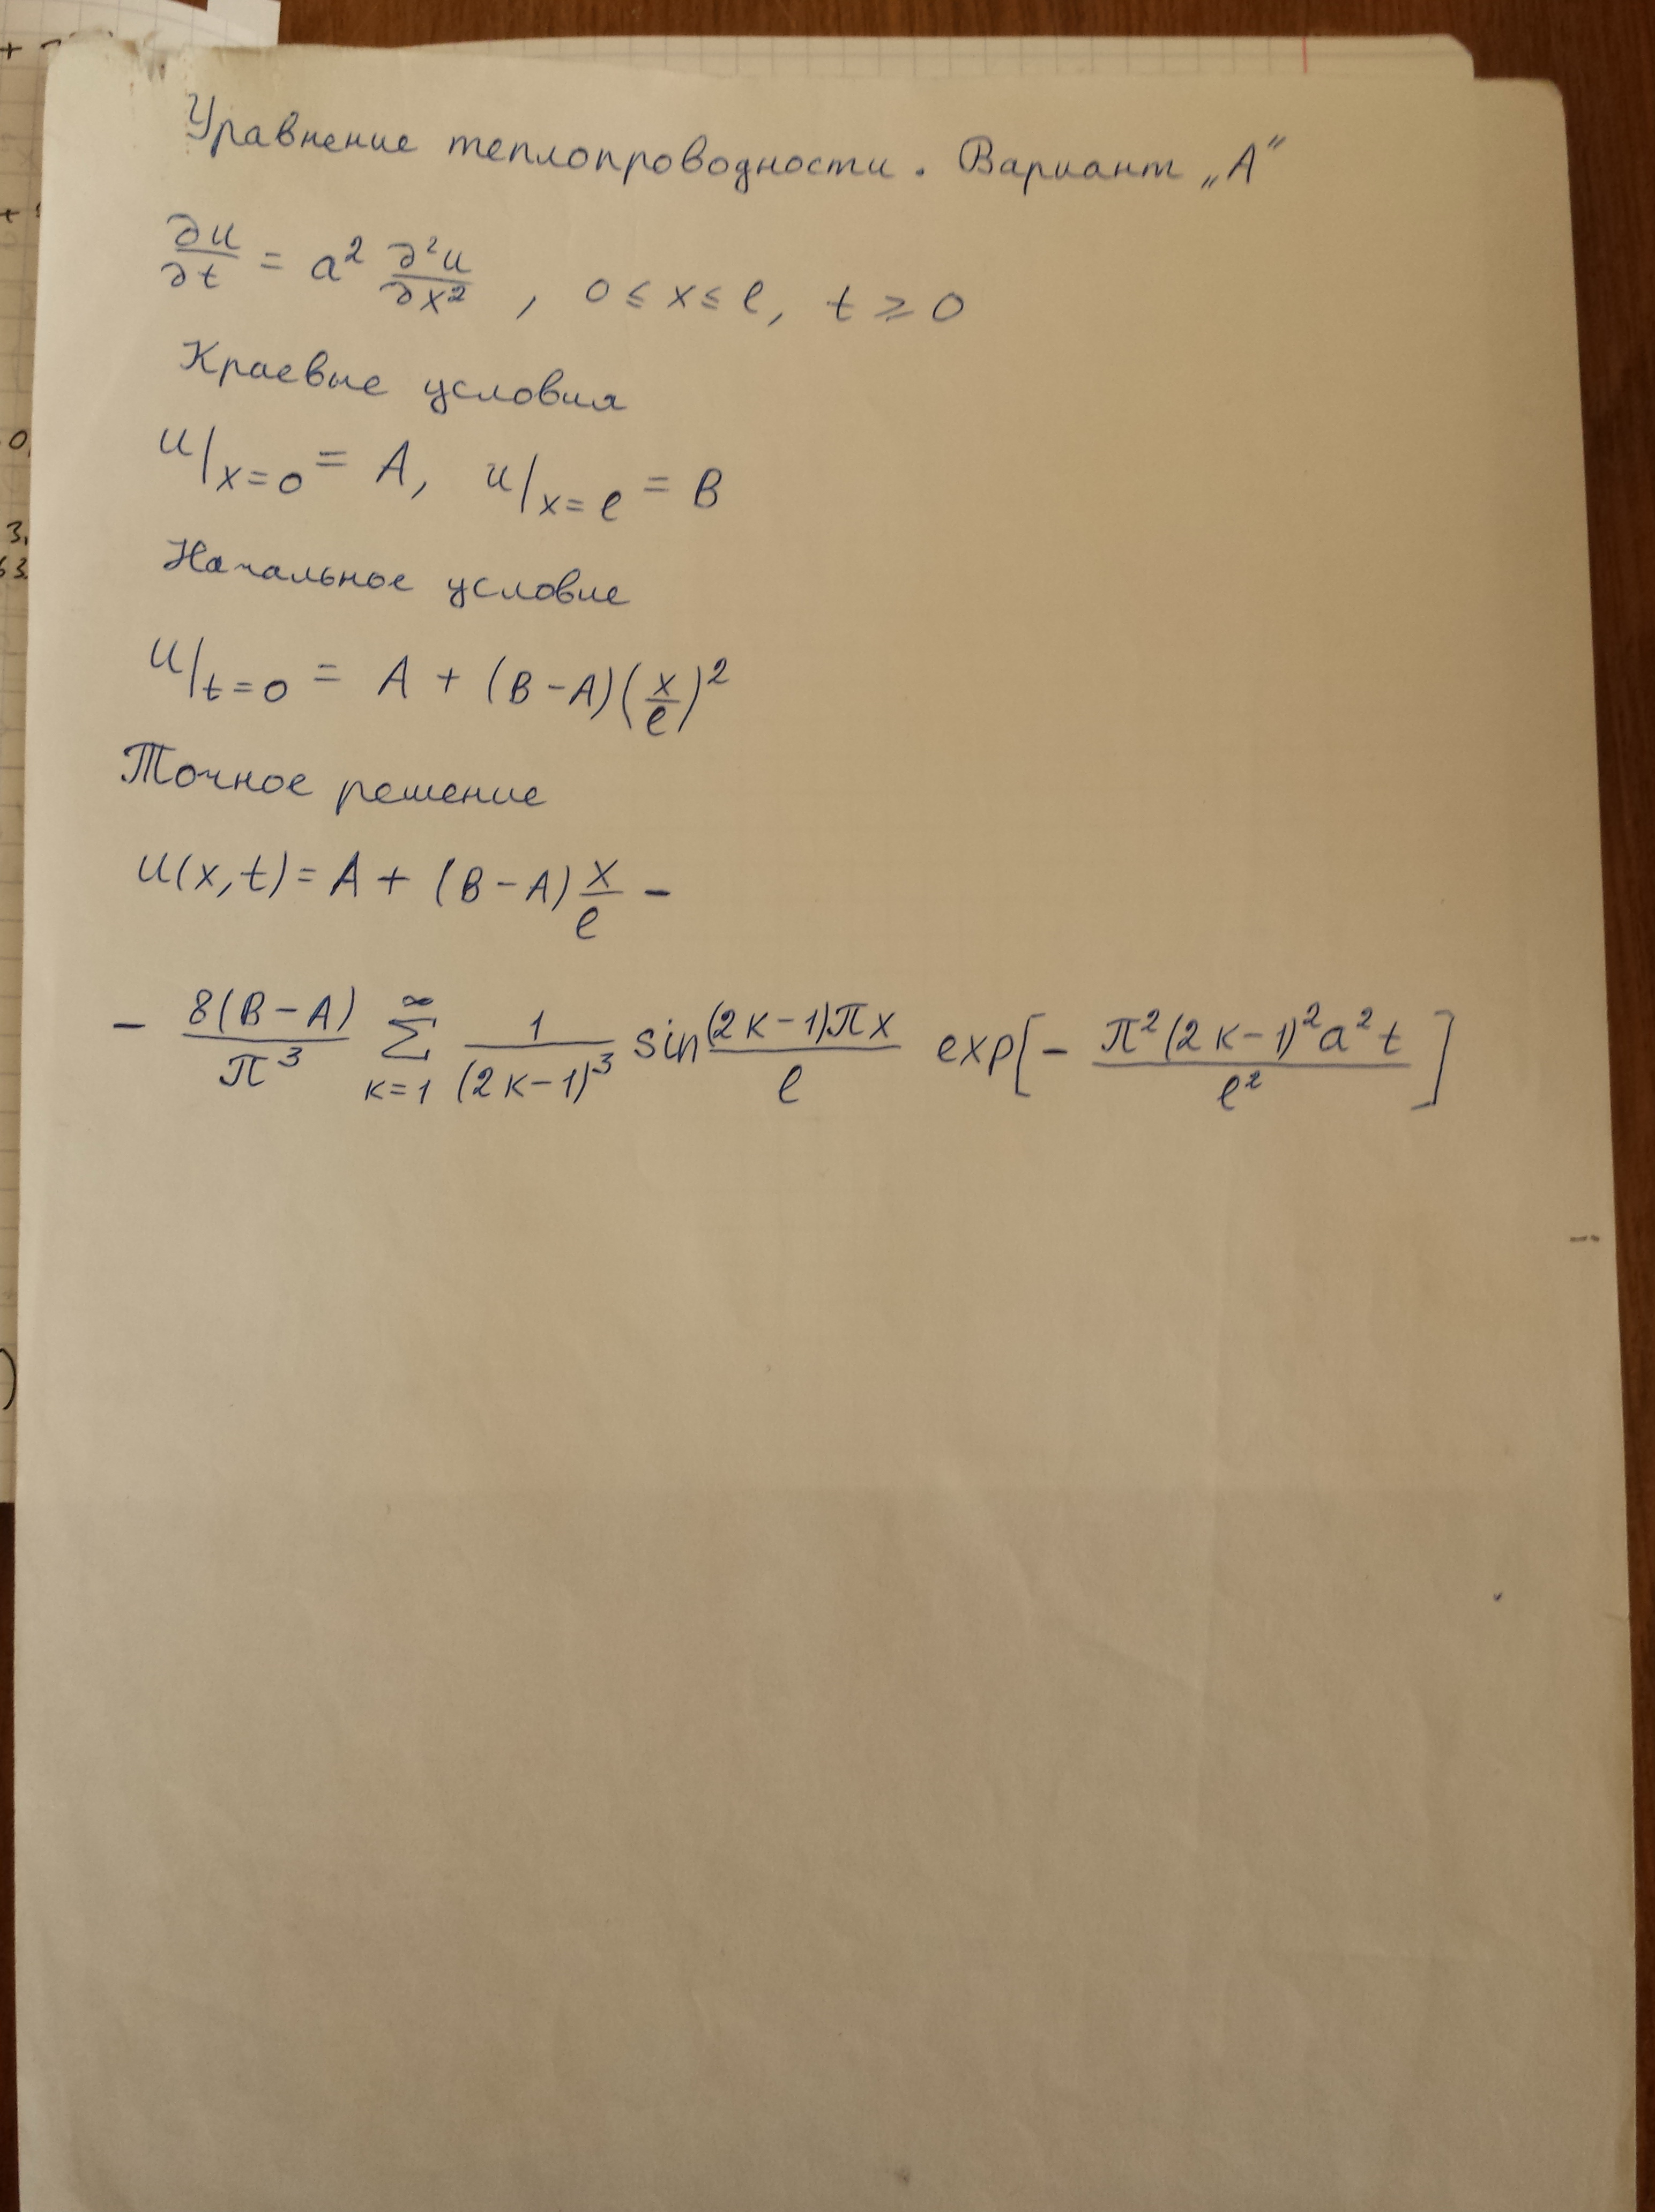 Уравнение теплопроводности. Вариант „А“
∂u/∂t = a² ∂²u/∂x² , 0 ≤ x ≤ l, t ≥ 0
Краевые условия
u|x=0 = A, u|x=l = B
Начальное условие
u|t=0 = A + (B - A)(x/l)²
Точное решение
u(x,t) = A + (B - A) x/l -
- 8(B - A)/π³ ∑ k=1 ∞ 1/(2k-1)³ sin (2k-1)πx/l exp[- π²(2k-1)²a²t/l²]